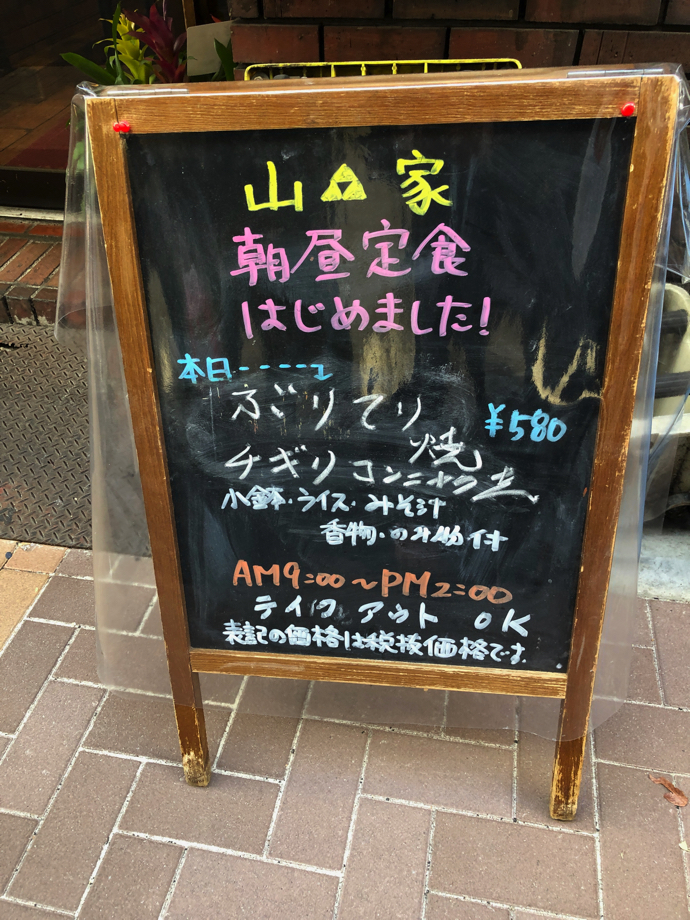 山 家
朝昼定食
はじめました!
本日
ぶりてり焼
¥580
チギリコンニャク煮
小鉢・ライス・みそ汁
香物・のみ物付
AM9:00～PM2:00
テイクアウト OK
表記の価格は税抜価格です。